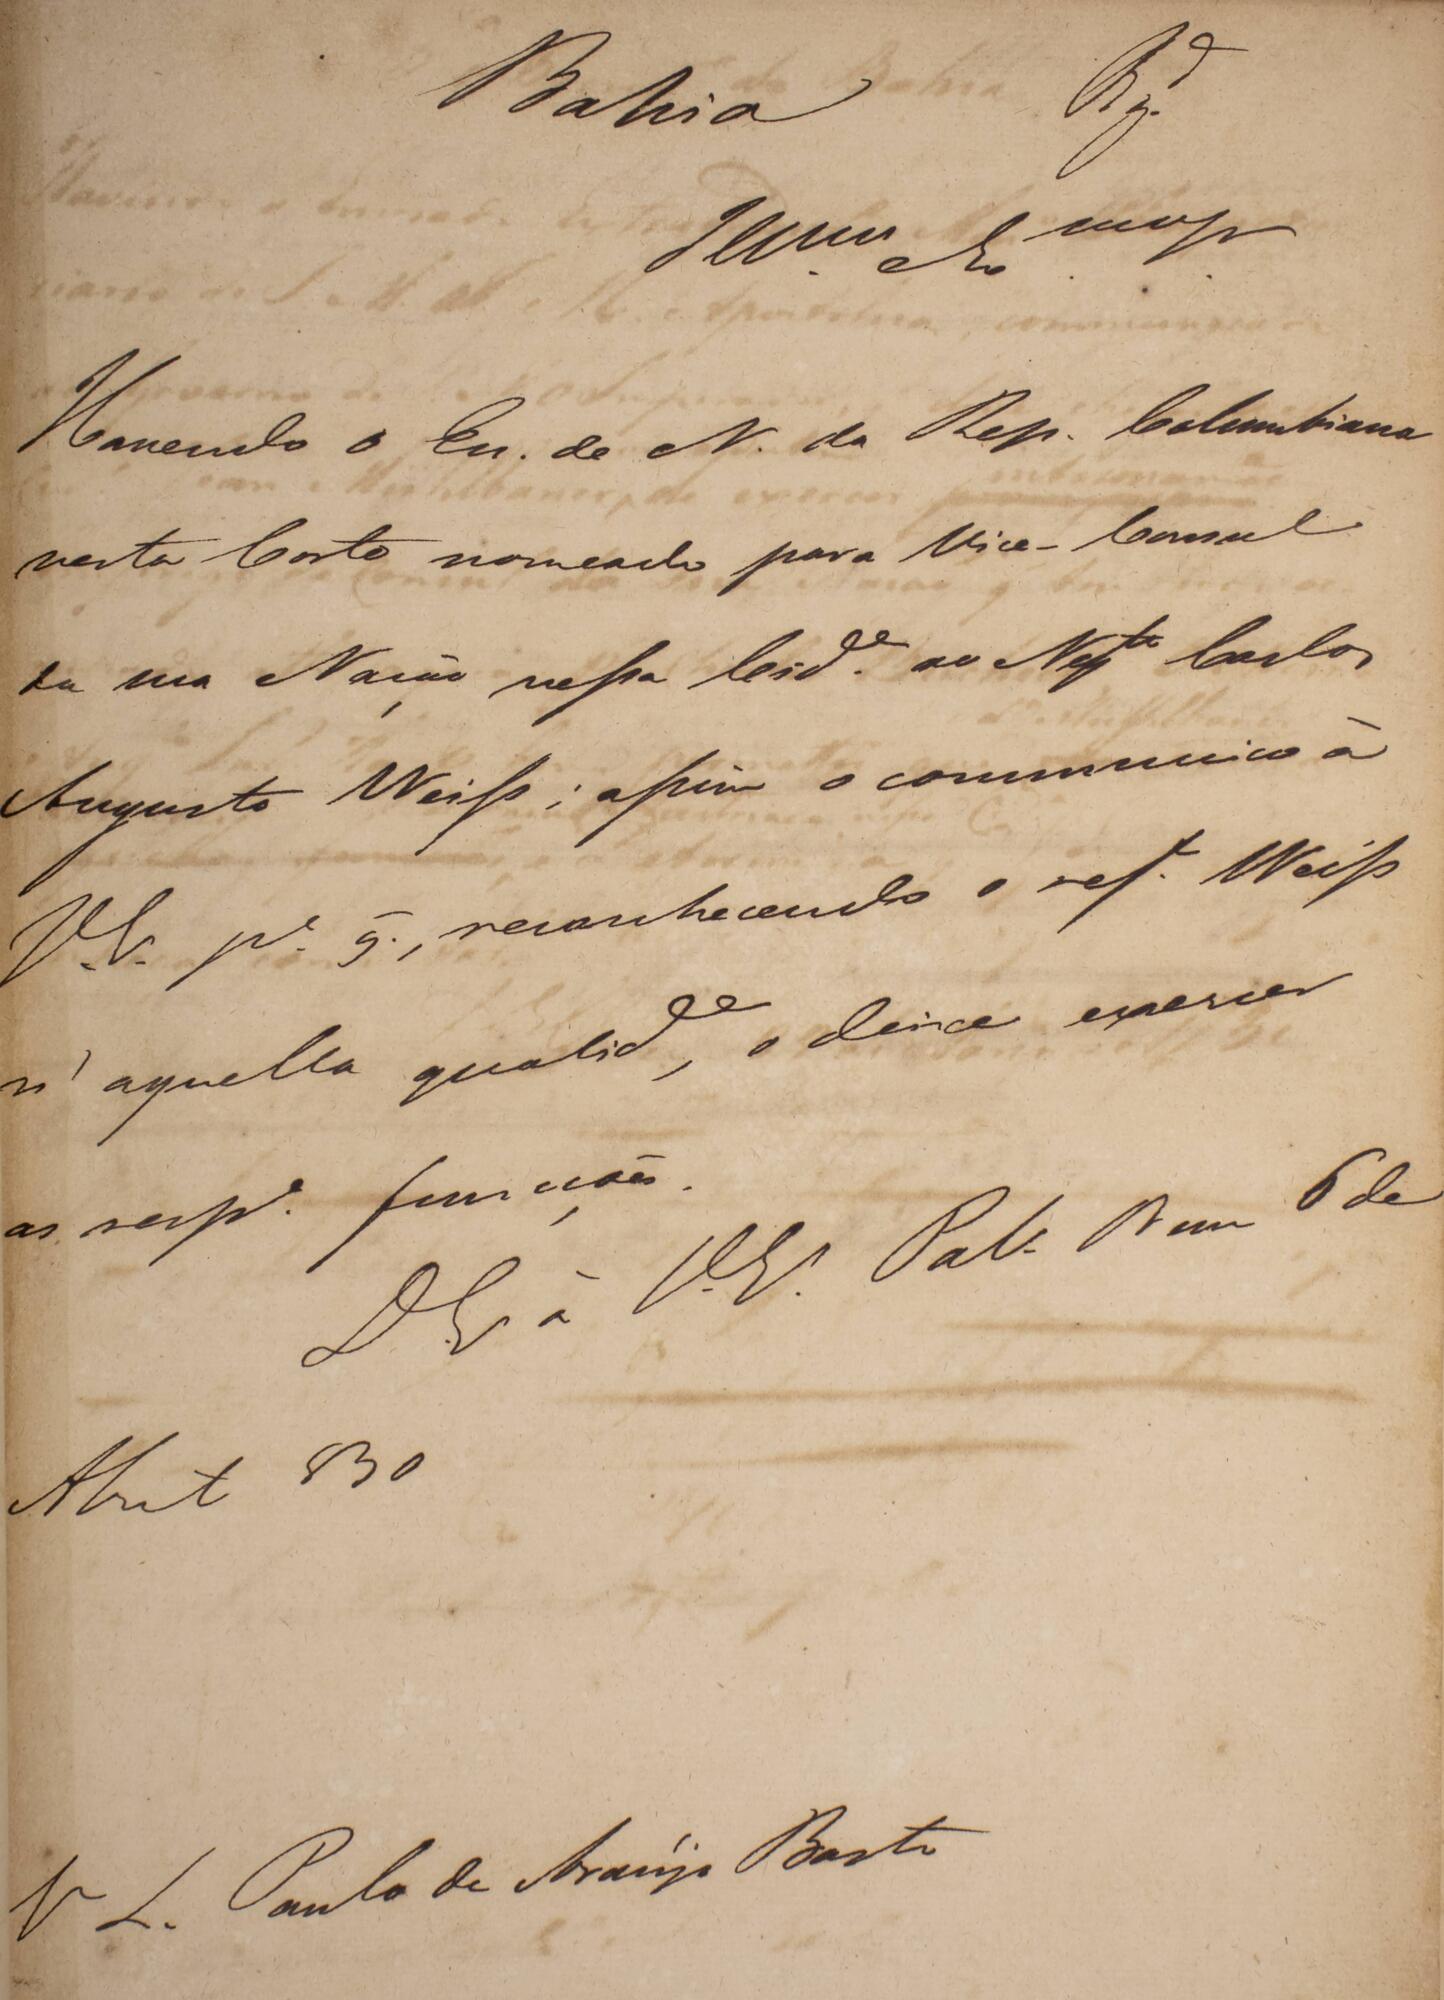 Bahia Rg.d
Illmo. Exmo. Snr
Havendo o En. de N. da Rep. Columbiana
nesta Corte nomeado para Vice-Consul
da sua Nação nessa Cid.e ao Neg.te Carlos
Augusto Weiss; assim o communico à
V.E. p.a q., reconhecendo o ref.o Weiss
n'aquella qualid.e, o deixe exercer
as resp.as funcções.
D G à V.E. Pal. R em 6 de
Abril 830
V L. Paulo de Araujo Basto